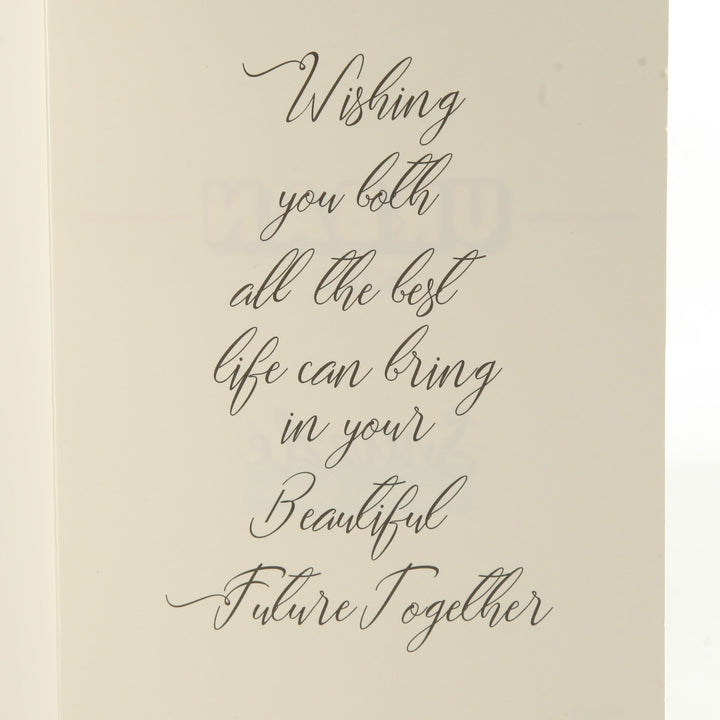 Wishing
you both
all the best
life can bring
in your
Beautiful
Future Together